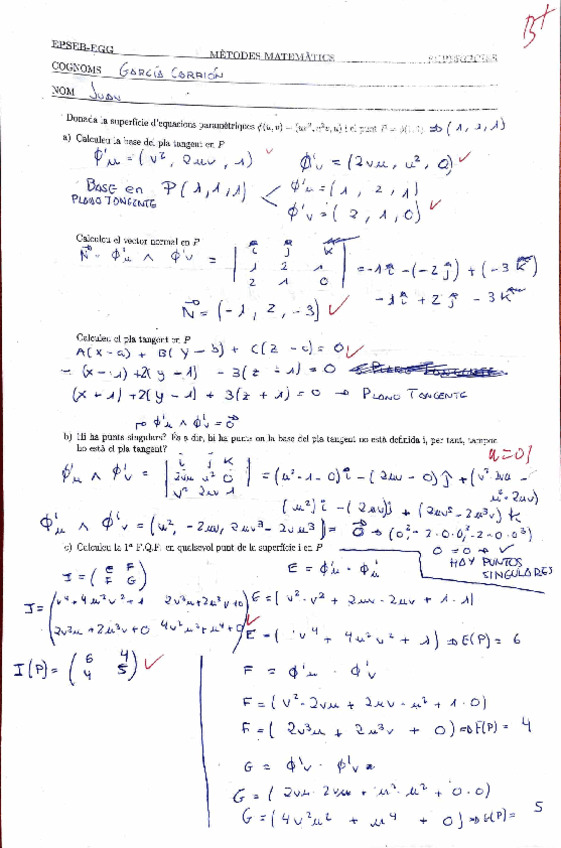 B+
EPSEB-EGG
MÈTODES MATEMÀTICS
SUPERFÍCIES
COGNOMS GARCÍA CARRIÓN
NOM JUAN
Donada la superfície d'equacions paramètriques ϕ(u,v) = (uv², u²v, u) i el punt P = ϕ(1,1) ⇒ (1,1,1)
a) Calculeu la base del pla tangent en P
ϕ'u = (v², 2uv, 1) ϕ'v = (2vu, u², 0)
BASE en P(1,1,1) ϕ'u = (1, 2, 1)
PLANO TANGENTE ϕ'v = (2, 1, 0)
Calculeu el vector normal en P
N = ϕ'u ∧ ϕ'v = | i j k |
| 1 2 1 | = -1i - (-2j) + (-3k)
| 2 1 0 | -1i + 2j - 3k
N = (-1, 2, -3)
Calculeu el pla tangent en P
A(x-a) + B(y-b) + C(z-c) = 0
- (x-1) + 2(y-1) - 3(z+1) = 0
(x+1) + 2(y-1) + 3(z+1) = 0 → PLANO TANGENTE
ϕ'u ∧ ϕ'v = 0
b) Hi ha punts singulars? És a dir, hi ha punts on la base del pla tangent no està definida i, per tant, tampoc
ho està el pla tangent?
u=0!
ϕ'u ∧ ϕ'v = | i j k |
| 2vu u² 0 | = (u²·1-0)i - (2uv-0)j + (v²·2uv -
| v² 2uv 1 | u²·2uv)
(u²)i - (2uv)j + (2uv³-2u³v)k
ϕ'u ∧ ϕ'v = (u², -2uv, 2uv³-2vu³) = 0 → (0², -2·0·0, 2-2·0·0³)
c) Calculeu la 1ª F.Q.F. en qualsevol punt de la superfície i en P
0=0 →
HAY PUNTOS
SINGULARES
I = ( E F
F G )
E = ϕ'u · ϕ'u
I = ( v⁴+4u²v²+1 2v³u+2u³v+0
2v³u+2u³v+0 4v²u²+u⁴+0 )
E = (v²·v² + 2uv·2uv + 1·1)
E = (v⁴ + 4u²v² + 1) ⇒ E(P) = 6
I(P) = ( 6 4
4 5 )
F = ϕ'u · ϕ'v
F = (v²·2vu + 2uv·u² + 1·0)
F = (2v³u + 2u³v + 0) ⇒ F(P) = 4
G = ϕ'v · ϕ'v =
G = (2vu·2vu + u²·u² + 0·0)
G = (4v²u² + u⁴ + 0) ⇒ G(P) = 5